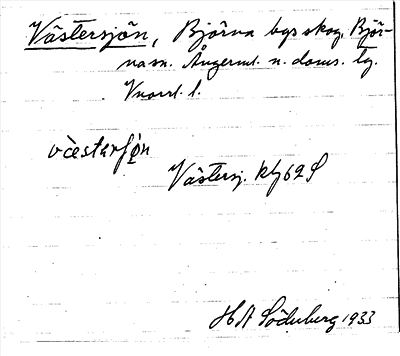 Västersjön, Björna bys skog, Björ-
nasn. Ångerml. n. doms. tg.
Vnorrl. l.
vèstarʃø̀n
Västersj. kbg 62 S
H A Söderberg 1933